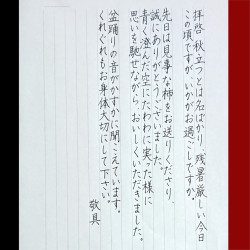 拝啓 秋立つとは名ばかり、残暑厳しい今日
この頃ですが、いかがお過ごしですか。
先日は見事な柿をお送りくださり、
誠にありがとうございました。
青く澄んだ空にたわわに実った様に
思いを馳せながら、おいしくいただきました。
盆踊りの音がかすかに聞こえています。
くれぐれもお身体大切にして下さい。
敬具